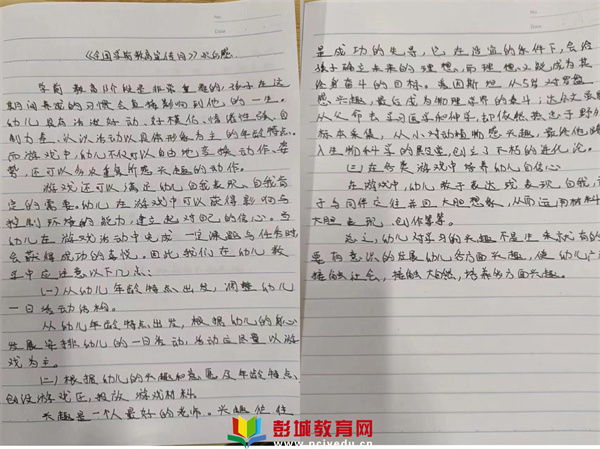 《全国学前教育宣传月》观后感
学前教育阶段是非常重要的,孩子在这
期间养成的习惯会直接影响到他的一生。
幼儿具有活泼好动、好模仿、情绪性强、自
制力差、认识活动以具体形象为主的年龄特点。
而游戏中,幼儿不仅可以自由地变换动作、姿
势,还可以多次重复所感兴趣的动作。
游戏还可以满足幼儿自我表现、自我肯
定的需要。幼儿在游戏中可以获得影响与
控制环境的能力,建立起对自己的信心。当
幼儿在游戏活动中完成一定课题与任务时
会获得成功的喜悦。因此我们在幼儿教
学中应注意以下几点:
(一)从幼儿年龄特点出发,调整幼儿
一日活动结构。
从幼儿年龄特点出发,根据幼儿的身心
发展安排幼儿的一日活动,活动应尽量以游
戏为主。
(二)根据幼儿的兴趣和意愿及年龄特点、
创设游戏区、投放游戏材料
兴趣是一个人最好的老师。兴趣往往
是成功的先导,它在适宜的条件下,会给
孩子确定未来的理想,而理想又能成为其
终身奋斗的目标。爱因斯坦从5岁对罗盘
感兴趣,最后成为物理学界的泰斗;达尔文虽
从父命去学习医学和神学,却依然热志于野外
标本采集,从小对动植物感兴趣,最终他将
入生物科学的殿堂,创立了不朽的进化论。
(三)在各类游戏中培养幼儿自信心
在游戏中,幼儿敢于表达或表现自我,
于与同伴交往并且大胆想象,从而运用材料
大胆表现、创作等等。
总之,幼儿对学习的兴趣不是生来就有的
要有意识的发展幼儿各方面兴趣,使幼儿广
接触社会,接触大自然,培养幼方面兴趣。
彭城教育网
www.pcjyedu.cn